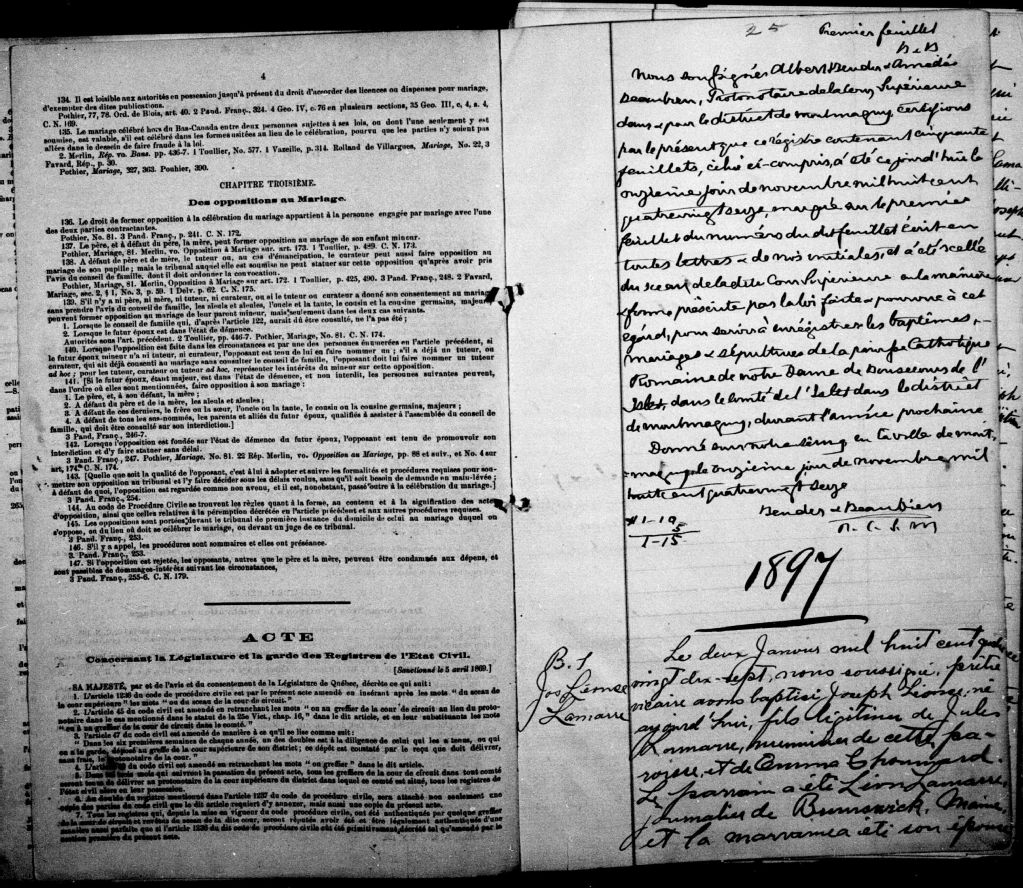 4
134. Il est loisible aux autorités en possession jusqu'à présent du droit d'accorder des licences ou dispenses pour mariage,
d'exempter des dites publications.
Pothier, 77, 78. Ord. de Blois, art. 40. 2 Pand. Franç., 324. 4 Geo. IV, c. 76 en plusieurs sections, 35 Geo. III, c, 4, s. 4,
C. N. 169.
135. Le mariage célébré hors du Bas-Canada entre deux personnes sujettes à ses lois, ou dont l'une seulement y est
soumise, est valable, s'il est célébré dans les formes usitées au lieu de la célébration, pourvu que les parties n'y soient pas
allées dans le dessein de faire fraude à la loi.
2. Merlin, Rép. vo. Bans. pp. 436-7. 1 Toullier, No. 577. 1 Vazeille, p. 314. Rolland de Villargues, Mariage, No. 22, 3
Favard, Rép., p. 30.
Pothier, Mariage, 327, 363. Pouhier, 390.
CHAPITRE TROISIÈME.
Des oppositions au Mariage.
136. Le droit de former opposition à la célébration du mariage appartient à la personne engagée par mariage avec l'une
des deux parties contractantes.
Pothier, No. 81. 3 Pand. Franç., p. 241. C. N. 172.
137. Le père, et à défaut du père, la mère, peut former opposition au mariage de son enfant mineur.
Pothier, Mariage, 81. Merlin, vo. Opposition à Mariage, sur. art. 173. 1 Toullier, p. 489. C. N. 173.
138. A défaut de père et de mère, le tuteur ou, au cas d'émancipation, le curateur peut aussi faire opposition au
mariage de son pupille; mais le tribunal auquel elle est soumise ne peut statuer sur cette opposition qu'après avoir pris
l'avis du conseil de famille, dont il doit ordonner la convocation.
Pothier, Mariage, 81. Merlin, Opposition à Mariage sur art. 172. 1 Toullier, p. 425, 490. 3 Pand. Franç., 248. 2 Favard,
Mariage, sec. 2, § 1, No. 3, p. 59. 1 Delv. p. 62. C. N. 175.
139. S'il n'y a ni père, ni mère, ni tuteur, ni curateur, ou si le tuteur ou curateur a donné son consentement au mariage
sans prendre l'avis du conseil de famille, les aïeuls et aïeules, l'oncle et la tante, le cousin et la cousine germains, majeurs,
peuvent former opposition au mariage de leur parent mineur, mais seulement dans les deux cas suivants.
1. Lorsque le conseil de famille qui, d'après l'article 122, aurait dû être consulté, ne l'a pas été;
2. Lorsque le futur époux est dans l'état de démence.
Autorités sous l'art. précédent. 2 Toullier, pp. 446-7. Pothier, Mariage, No. 81. C. N. 174.
140. Lorsque l'opposition est faite dans les circonstances et par une des personnes énumérées en l'article précédent, si
le futur époux mineur n'a ni tuteur, ni curateur, l'opposant est tenu de lui en faire nommer un; s'il a déjà un tuteur, ou
curateur, qui ait déjà consenti au mariage sans consulter le conseil de famille, l'opposant doit lui faire nommer un tuteur
ad hoc; pour les tuteur, curateur ou tuteur ad hoc, représenter les intérêts du mineur sur cette opposition.
141. [Si le futur époux, étant majeur, est dans l'état de démence, et non interdit, les personnes suivantes peuvent,
dans l'ordre où elles sont mentionnées, faire opposition à son mariage:
1. Le père, et, à son défaut, la mère;
2. A défaut du père et de la mère, les aïeuls et aïeules;
3. A défaut de ces derniers, le frère ou la sœur, l'oncle ou la tante, le cousin ou la cousine germains, majeurs;
4. A défaut de tous les sus-nommés, les parents et alliés du futur époux, qualifiés à assister à l'assemblée du conseil de
famille, qui doit être consulté sur son interdiction.]
3 Pand. Franç., 246-7.
142. Lorsque l'opposition est fondée sur l'état de démence du futur époux, l'opposant est tenu de promouvoir son
interdiction et d'y faire statuer sans délai.
3 Pand. Franç., 247. Pothier, Mariage. No. 81. 22 Rép. Merlin, vo. Opposition au Mariage, pp. 88 et suiv., et No. 4 sur
art, 174. C. N. 174.
143. [Quelle que soit la qualité de l'opposant, c'est à lui à adopter et suivre les formalités et procédures requises pour sou-
mettre son opposition au tribunal et l'y faire décider sous les délais voulus, sans qu'il soit besoin de demande en main-levée;
à défaut de quoi, l'opposition est regardée comme non avenu, et il est, nonobstant, passé outre à la célébration du mariage.]
3 Pand. Franç., 254.
144. Au code de Procédure Civile se trouvent les règles quant à la forme, au contenu et à la signification des actes
d'opposition, ainsi que celles relatives à la péremption décrétée en l'article précédent et aux autres procédures requises.
145. Les oppositions sont portées devant le tribunal de première instance du domicile de celui au mariage duquel on
s'oppose, ou du lieu où doit se célébrer le mariage, ou devant un juge de ce tribunal.
3 Pand. Franç., 253.
146. S'il y a appel, les procédures sont sommaires et elles ont préséance.
3 Pand. Franç., 253.
147. Si l'opposition est rejetée, les opposants, autres que le père et la mère, peuvent être condamnés aux dépens, et
sont passibles de dommages-intérêts suivant les circonstances,
3 Pand. Franç., 255-6. C. N. 179.
ACTE
Concernant la Législature et la garde des Registres de l'Etat Civil.
[Sanctionné le 5 avril 1869.]
SA MAJESTÉ, par et de l'avis et du consentement de la Législature de Québec, décrète ce qui suit:
1. L'article 1236 du code de procédure civile est par le présent acte amendé en insérant après les mots "du sceau de
la cour supérieure" les mots "ou du sceau de la cour de circuit."
2. L'article 45 du code civil est amendé en retranchant les mots "ou au greffier de la cour de circuit au lieu du proto-
notaire dans le cas mentionné dans le statut de la 25e Vict., chap. 16," dans le dit article, et en leur substituant les mots
"ou à un greffier de la cour de circuit dans le comté."
3. L'article 47 du code civil est amendé de manière à ce qu'il se lise comme suit:
"Dans les six premières semaines de chaque année, un des doubles est à la diligence de celui qui les a tenus, ou qui
en a la garde, déposé au greffe de la cour supérieure de son district; ce dépôt est constaté par le reçu que doit délivrer,
sans frais, le protonotaire de la cour."
4. L'article du code civil est amendé en retranchant les mots "ou greffier" dans le dit article.
5. Dans les mois qui suivront la passation du présent acte, tous les greffiers de la cour de circuit dans tout comté
seront tenus de délivrer au protonotaire de la cour supérieure du district dans lequel ce comté est situé, tous les registres de
l'état civil alors en leur possession.
6. Au double du registre mentionné dans l'article 1237 du code de procédure civile, sera attaché non seulement une
copie des parties du code civil que le dit article requiert d'y annexer, mais aussi une copie du présent acte.
7. Tous les registres qui, depuis la mise en vigueur du code procédure civile, ont été authentiqués par quelque greffier
de la cour de circuit et revêtus du sceau de la dite cour, seront réputés avoir été et être légalement authentiqués d'une
manière aussi parfaite que si l'article 1236 du dit code de procédure civile eût été primitivement décrété tel qu'amendé par la
section première du présent acte.
25
Premier feuillet
B & B
Nous soussignés Albert Bender & Amédée
Beaubien, Protonotaire de la Cour Supérieure
dans & pour le district de Montmagny certifions
par le présent que ce régistre contenant cinquante
feuillets, celui ci-compris, a été ce jour d'hui le
onzième jour de novembre mil huit cent
quatrevingt seize, marqué sur le premier
feuillet du numéro du dit feuillet écrit en
toutes lettres & de nos initiales, et a été scellé
du sceau de la dite Cour Supérieure en la manière
& forme préscrite par la loi faite & pourvue à cet
égard, pour servir à enrégistrer les baptêmes,
mariages & sépultures de la paroisse Catholique
Romaine de Notre Dame de Bonsecours de l'
Islet, dans le comté de l'Islet dans le district
de Montmagny, durant l'année prochaine
Donné sous notre seing en la ville de Mont-
magny le onzième jour de novembre mil
huit cent quatrevingt seize
Bender & Beaubien
P. C. S. M
1-10
5
1-15
1897
B. 1
Jos Léonse
Lamarre
Le deux Janvier mil huit cent quatre
vingt dix-sept, nous soussigné, prêtre
vicaire avons baptisé Joseph Léonse, né
aujourd'hui, fils légitime de Jules
Lamarre, menuisier de cette pa-
roisse, et de Emma Chouinard.
Le parrain a été Léon Lamarre,
journalier de Brunswick, Maine,
et la marraine a été son épouse